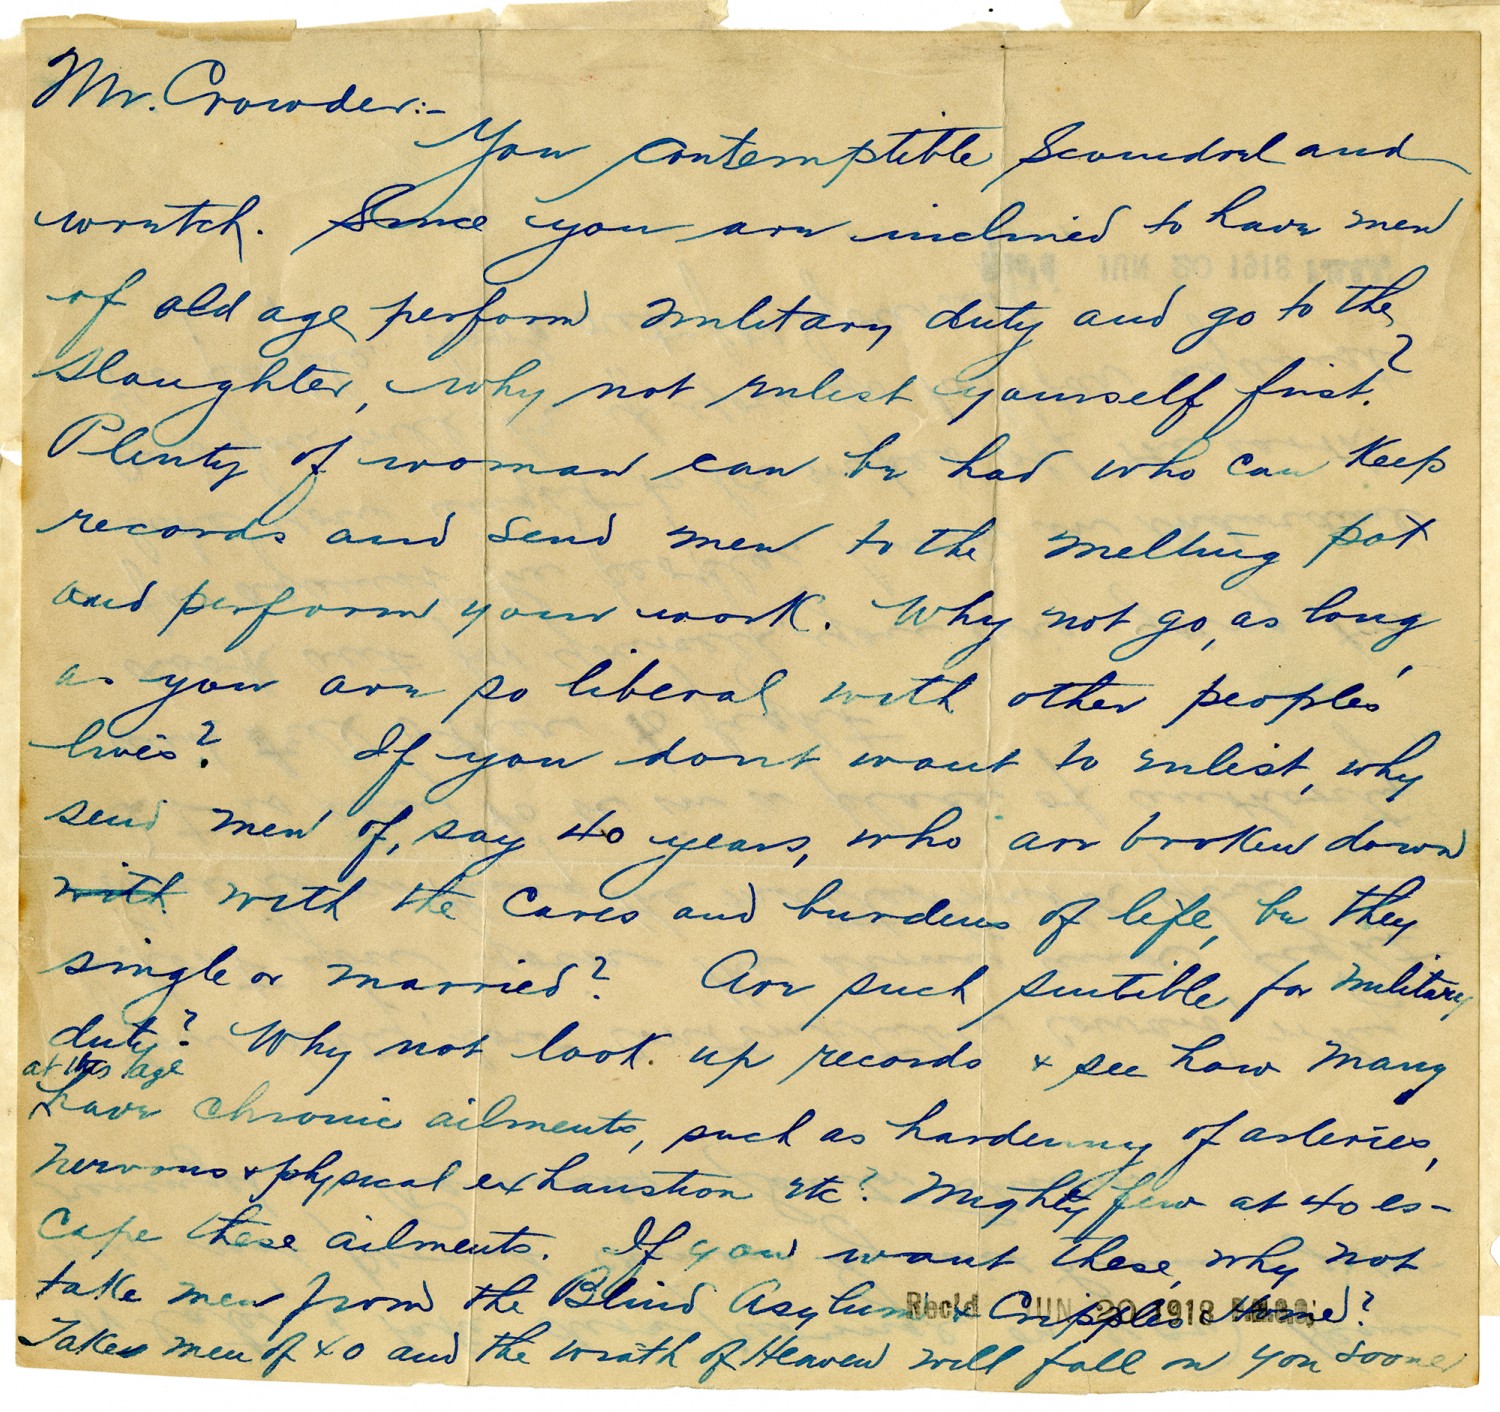 Mr. Crowder:-
You contemptible scoundrel and
wretch. Since you are inclined to have men
of old age perform military duty and go to the
slaughter, why not enlist yourself first?
Plenty of woman can be had who can keep
records and send men to the melting pot
and perform your work. Why not go, as long,
as you are so liberal with other people's
lives? If you dont want to enlist, why
send men of, say 40 years, who are broken down
with with the cares and burdens of life, be they
single or married? Are such suitible for military
duty? Why not look up records & see how many
at this age
have chronic ailments, such as hardening of arteries,
nervous & physical exhaustion etc? Mighty few at 40 es-
cape these ailments. If you want these, why not
take men from the Blind Asylum & Cripples Home?
Rec'd JUN 20 1918
Take men of 40 and the wrath of Heaven will fall on you sooner